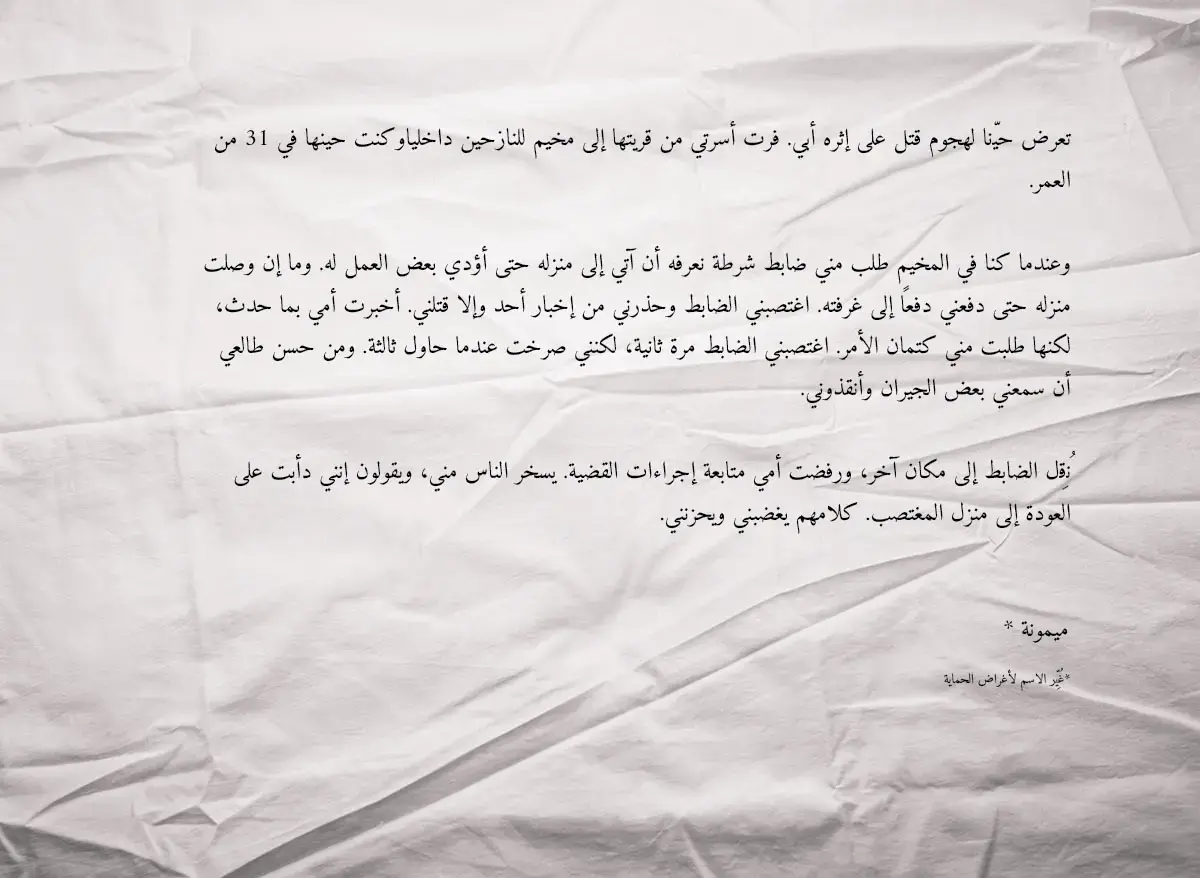 تعرض حيّنا لهجوم قتل على إثره أبي. فرت أسرتي من قريتها إلى مخيم للنازحين داخلياوكنت حينها في 31 من
العمر.
وعندما كنا في المخيم طلب مني ضابط شرطة نعرفه أن آتي إلى منزله حتى أؤدي بعض العمل له. وما إن وصلت
منزله حتى دفعني دفعاً إلى غرفته. اغتصبني الضابط وحذرني من إخبار أحد وإلا قتلني. أخبرت أمي بما حدث،
لكنها طلبت مني كتمان الأمر. اغتصبني الضابط مرة ثانية، لكنني صرخت عندما حاول ثالثة. ومن حسن طالعي
أن سمعني بعض الجيران وأنقذوني.
نُقِل الضابط إلى مكان آخر، ورفضت أمي متابعة إجراءات القضية. يسخر الناس مني، ويقولون إنني دأبت على
العودة إلى منزل المغتصب. كلامهم يغضبني ويحزنني.
ميمونة *
*غُيِّر الاسم لأغراض الحماية